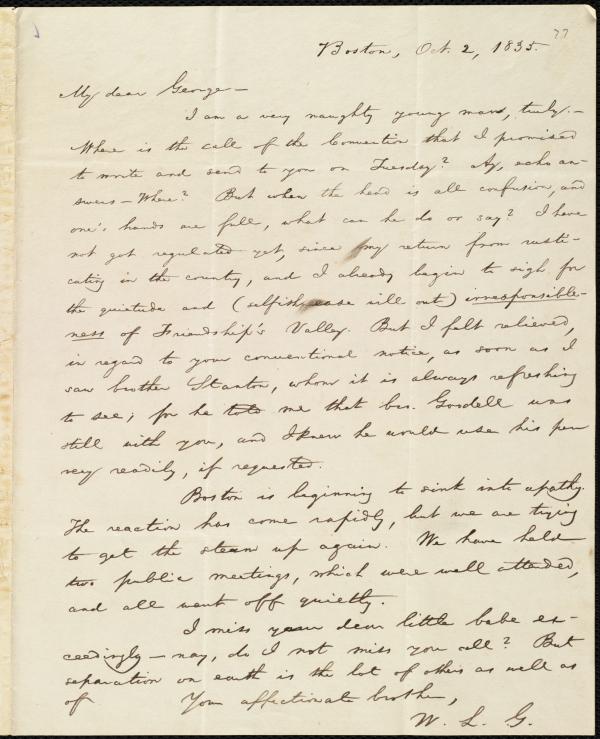 77
Boston, Oct. 2, 1835.
My dear George—
I am a very naughty young man, truly.—
Where is the call of the Convention that I promised
to write and send to you on Tuesday? Ay, echo an-
swers—Where? But when the head is all confusion, and
one's hands are full, what can he do or say? I have
not got regulated yet, since my return from rusti-
cating in the country, and I already begin to sigh for
the quietude and (selfish ease will out) irresponsible-
ness of Friendship's Valley. But I felt relieved,
in regard to your conventional notice, as soon as I
saw brother Stanton, whom it is always refreshing
to see; for he told me that bro. Goodell was
still with you, and I knew he would use his pen
very readily, if requested.
Boston is beginning to sink into apathy.
The reaction has come rapidly, but we are trying
to get the steam up again. We have held
two public meetings, which were well attended,
and all went off quietly.
I miss your dear little babe ex-
ceedingly—nay, do I not miss you all? But
separation on earth is the lot of others as well as
of
Your affectionate brother,
W. L. G.